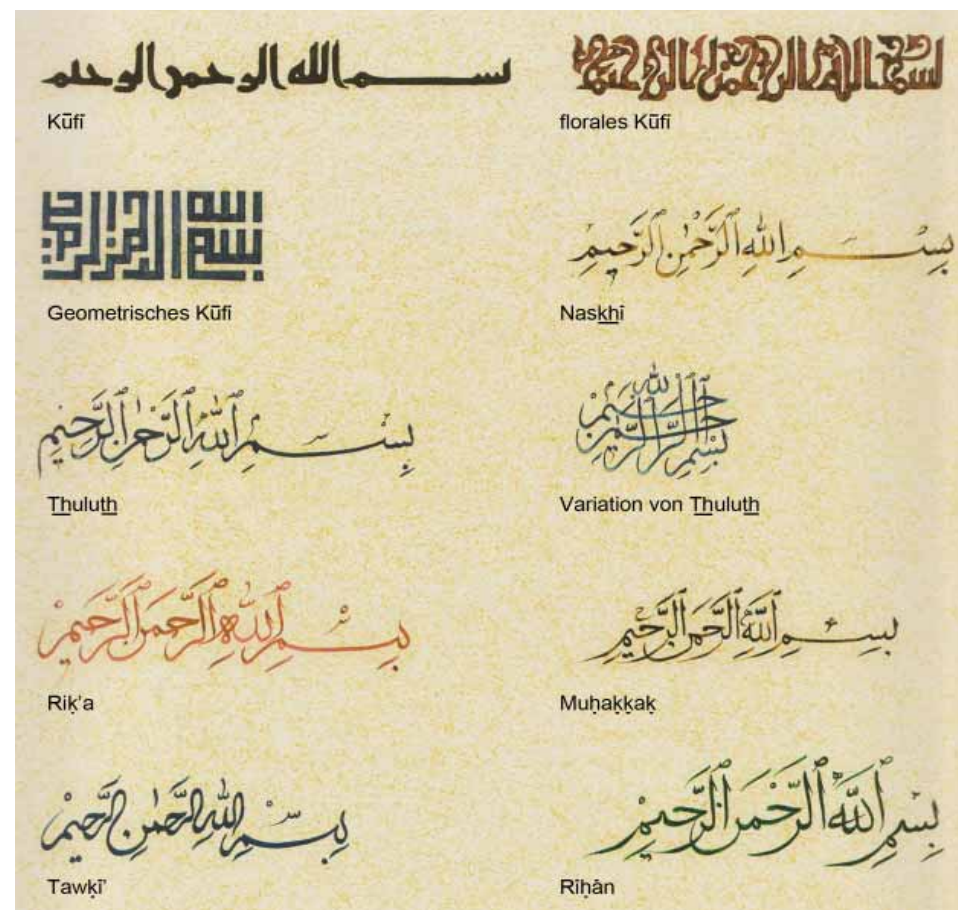 بسم الله الرحمن الرحيم
Kūfī
بسم الله الرحمن الرحيم
florales Kūfī
بسم الله الرحمن الرحيم
Geometrisches Kūfī
بِسْمِ اللهِ الرَّحْمٰنِ الرَّحِيمِ
Naskhī
بِسْمِ اللهِ الرَّحْمٰنِ الرَّحِيمِ
Thuluth
بِسْمِ اللهِ الرَّحْمٰنِ الرَّحِيمِ
Variation von Thuluth
بسم الله الرحمن الرحيم
Riḳ'a
بِسْمِ اللهِ الرَّحْمٰنِ الرَّحِيمِ
Muḥaḳḳaḳ
بِسْمِ اللهِ الرَّحْمٰنِ الرَّحِيمِ
Tawḳī'
بِسْمِ اللهِ الرَّحْمٰنِ الرَّحِيمِ
Rīḥān